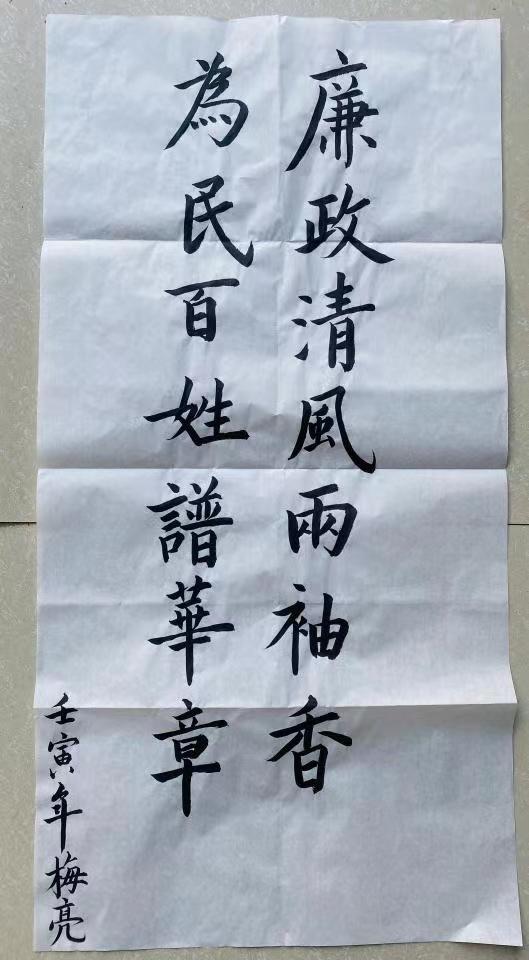 廉政清風兩袖香
為民百姓譜華章
壬寅年梅亮